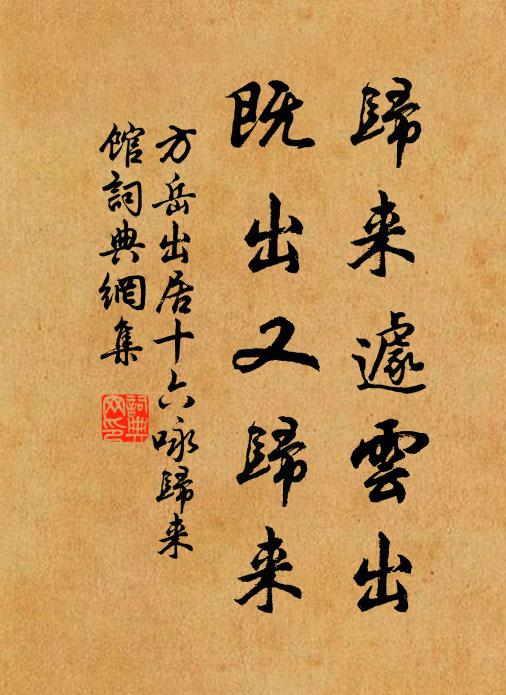 歸来遽雲出
既出又歸来
方岳出居十六咏歸来
館詞典網集
詞典网印